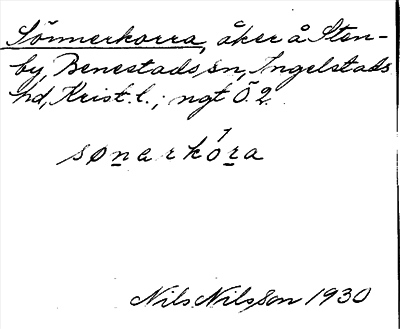 Sönnerkorra, åker å Sten-
by, Benestads sn, Ingelstads
hd, Krist. l.; ngt Ö. 2.
sønarkóra
Nils Nilsson 1930